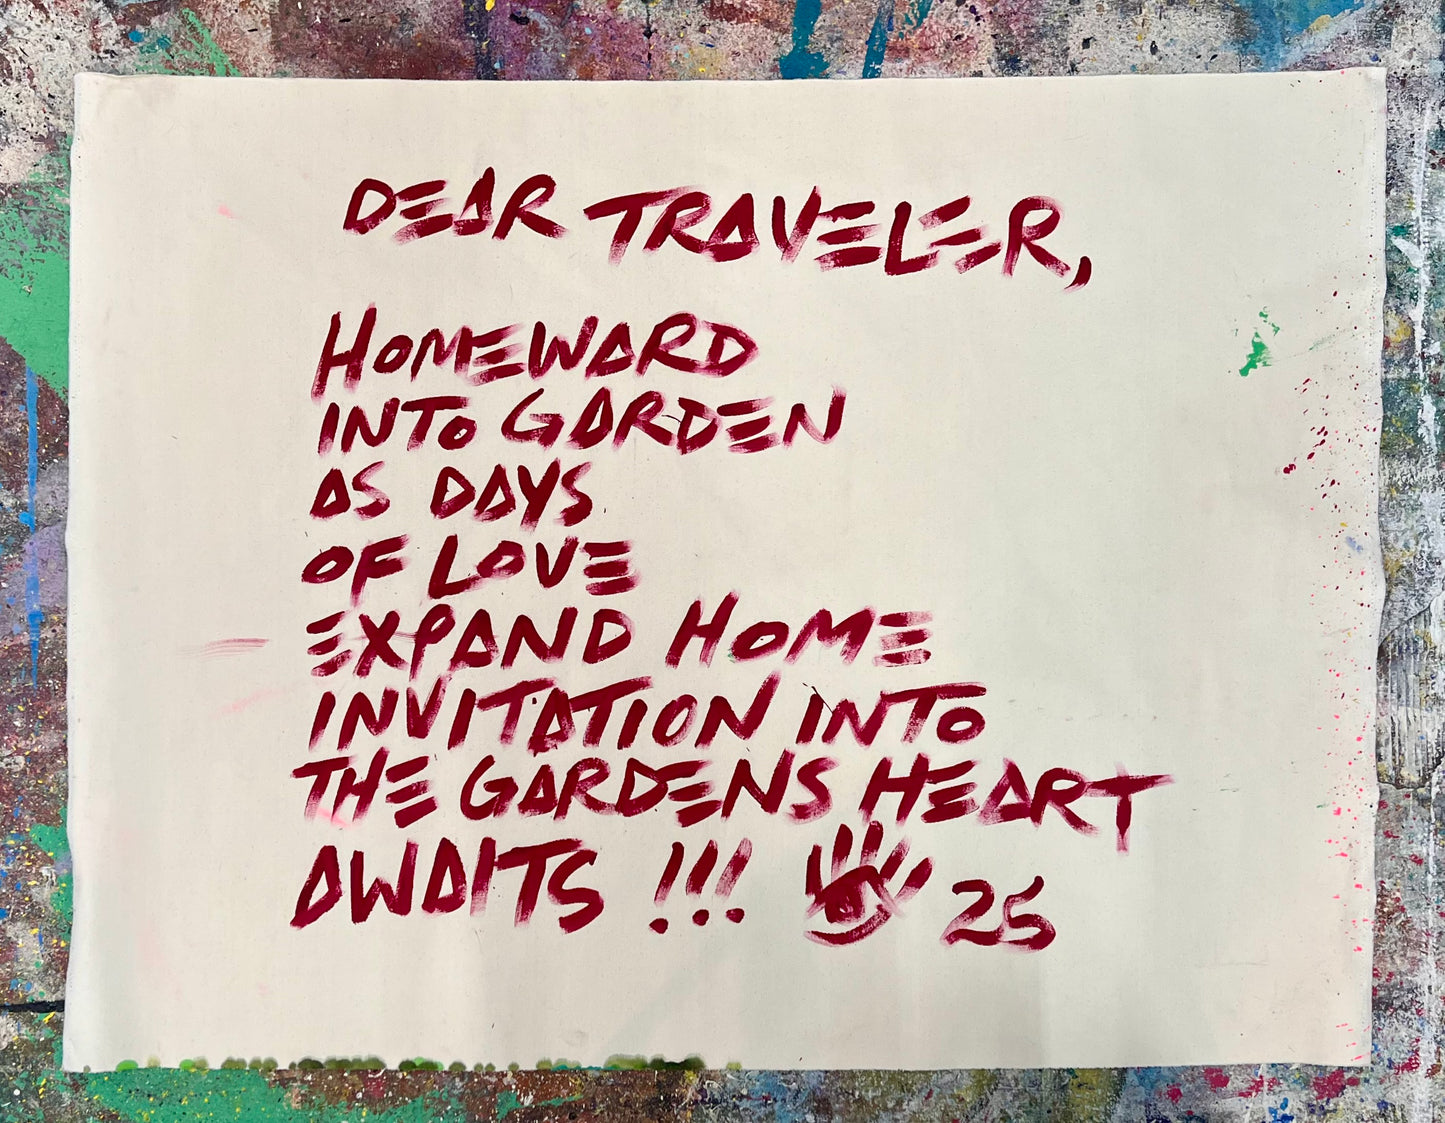 DEAR TRAVELER,
HOMEWARD
INTO GARDEN
AS DAYS
OF LOVE
EXPAND HOME
INVITATION INTO
THE GARDENS HEART
AWAITS !!! 25